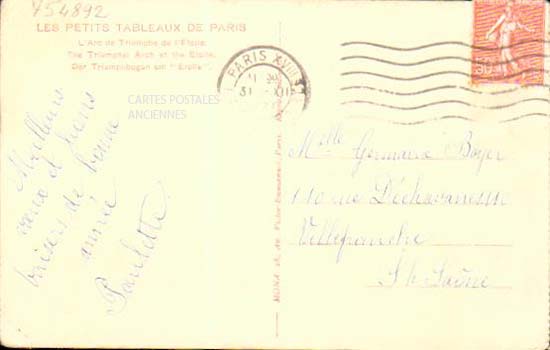 454892
LES PETITS TABLEAUX DE PARIS
L'Arc de Triomphe de l'Etoile.
The Triumphal Arch at the Etoile.
Der Triumphbogen am "Etoile".
PARIS XVIII
31 XII
50
CARTES POSTALES
ANCIENNES
Meilleurs
vœux et bons
baisers de bonne
année
Paulette
Mlle Germaine Boyer
110 rue Déchavanne
Villefranche
S/s Saône
MONA